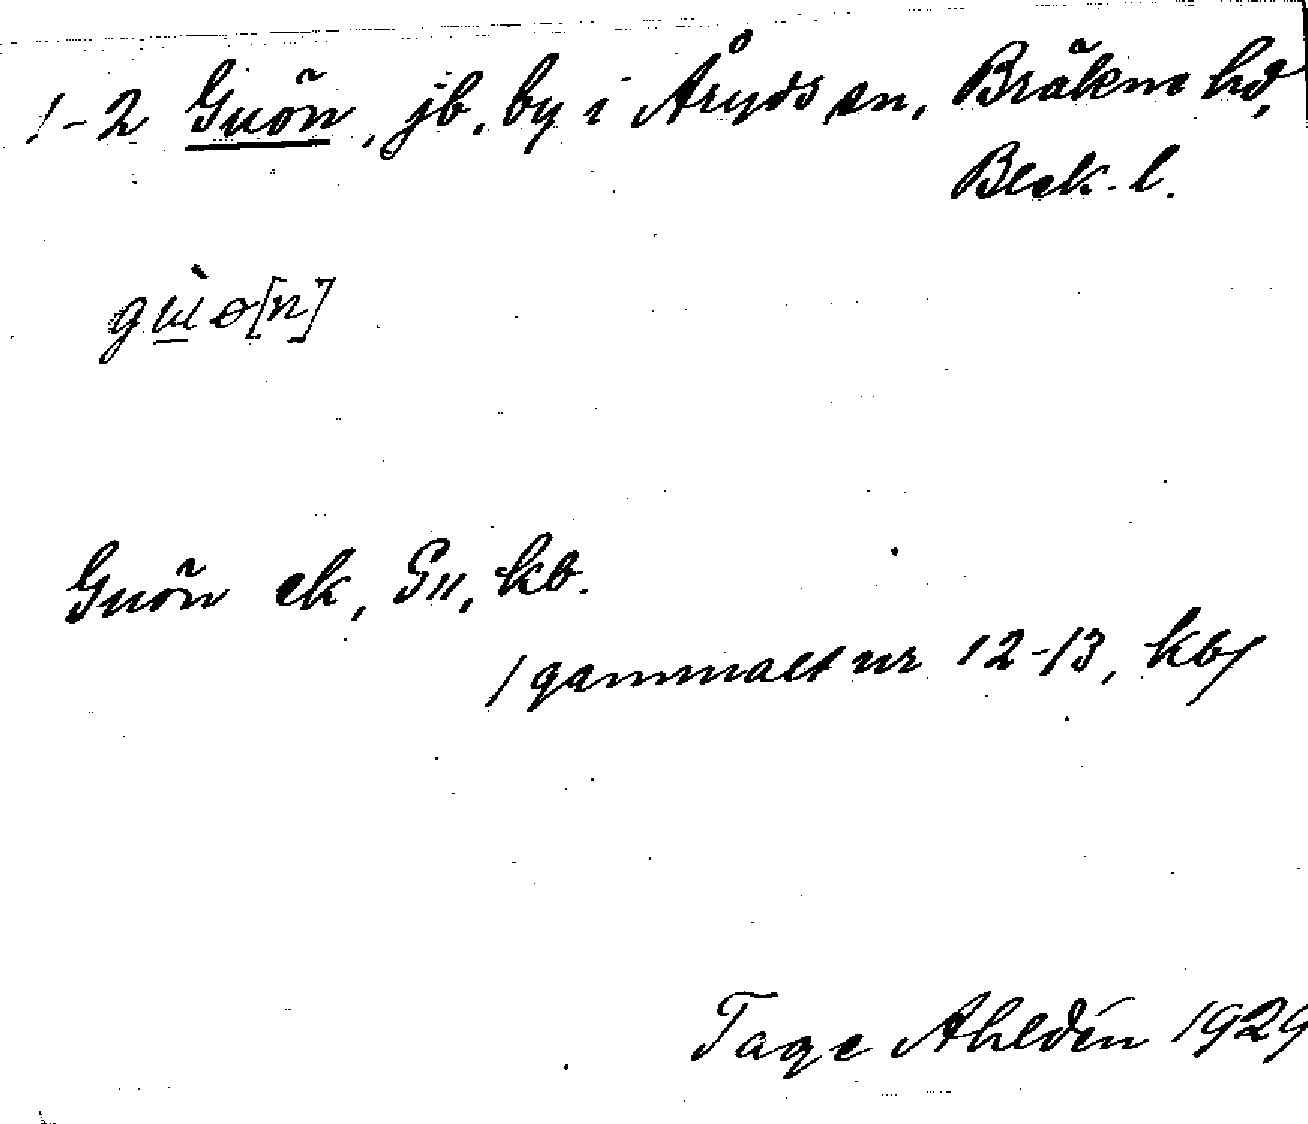 1-2 Guön, jb, by i Åryds sn, Bräkne hd,
Blek. l.
Guön ek, G11, kb.
/gammalt nr 12-13, kb/
Tage Ahldén 1929